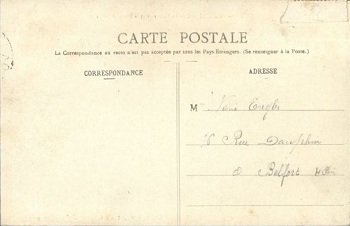 CARTE POSTALE
La Correspondance au verso n'est pas acceptée par tous les Pays Étrangers. (Se renseigner à la Poste.)
CORRESPONDANCE
ADRESSE
M
Rue Dauphin
à Belfort